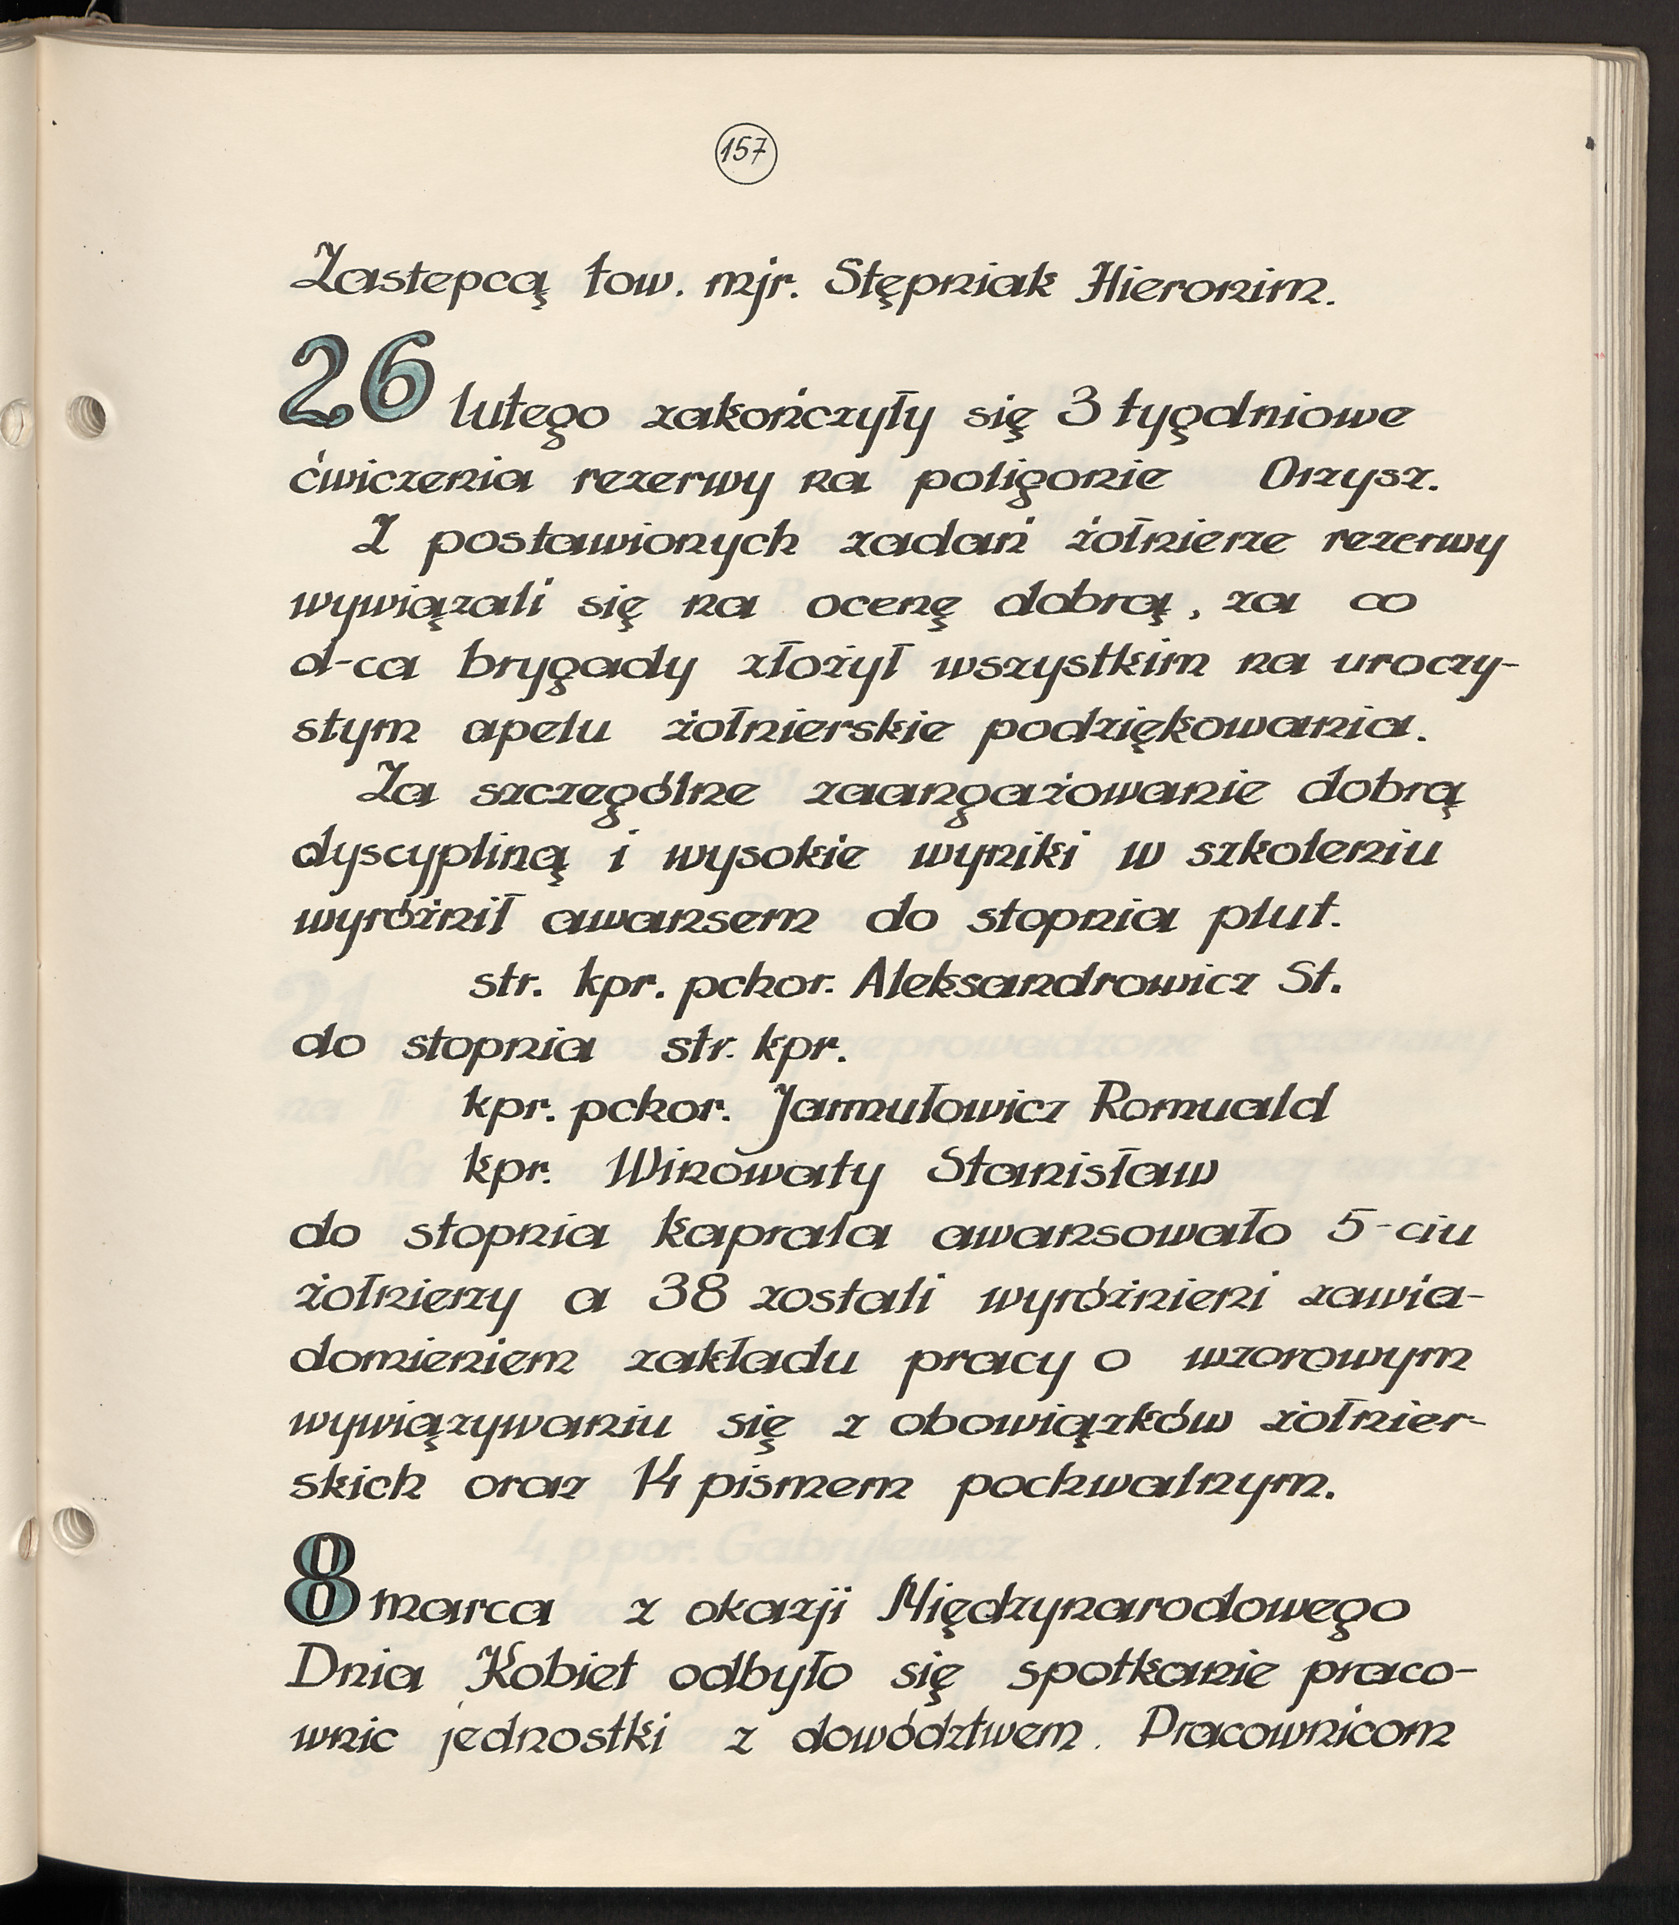 157
Zastepcą tow. mjr. Stępniak Hieronim.
26 lutego zakończyły się 3 tygodniowe
ćwiczenia rezerwy na poligonie Orzysz.
Z postawionych zadań żołnierze rezerwy
wywiązali się na ocenę dobrą, za co
d-ca brygady złożył wszystkim na uroczy-
stym apelu żołnierskie podziękowania.
Za szczególne zaangażowanie dobrą
dyscypliną i wysokie wyniki w szkoleniu
wyróżnił awansem do stopnia plut.
str. kpr. pchor. Aleksandrowicz St.
do stopnia str. kpr.
kpr. pchor. Jarmułowicz Romuald
kpr. Winowaty Stanisław
do stopnia kaprala awansowało 5-ciu
żołnierzy a 38 zostali wyróżnieni zawia-
domieniem zakładu pracy o wzorowym
wywiązywaniu się z obowiązków żołnier-
skich oraz 14 pismem pochwalnym.
8 marca z okazji Międzynarodowego
Dnia Kobiet odbyło się spotkanie praco-
wnic jednostki z dowództwem. Pracownicom